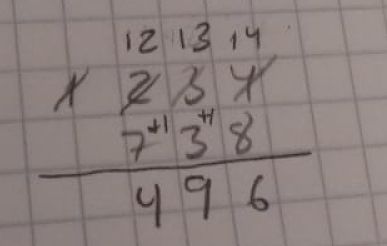 12 13 14
1 2 3 4
7 +1 3 +1 8
4 9 6